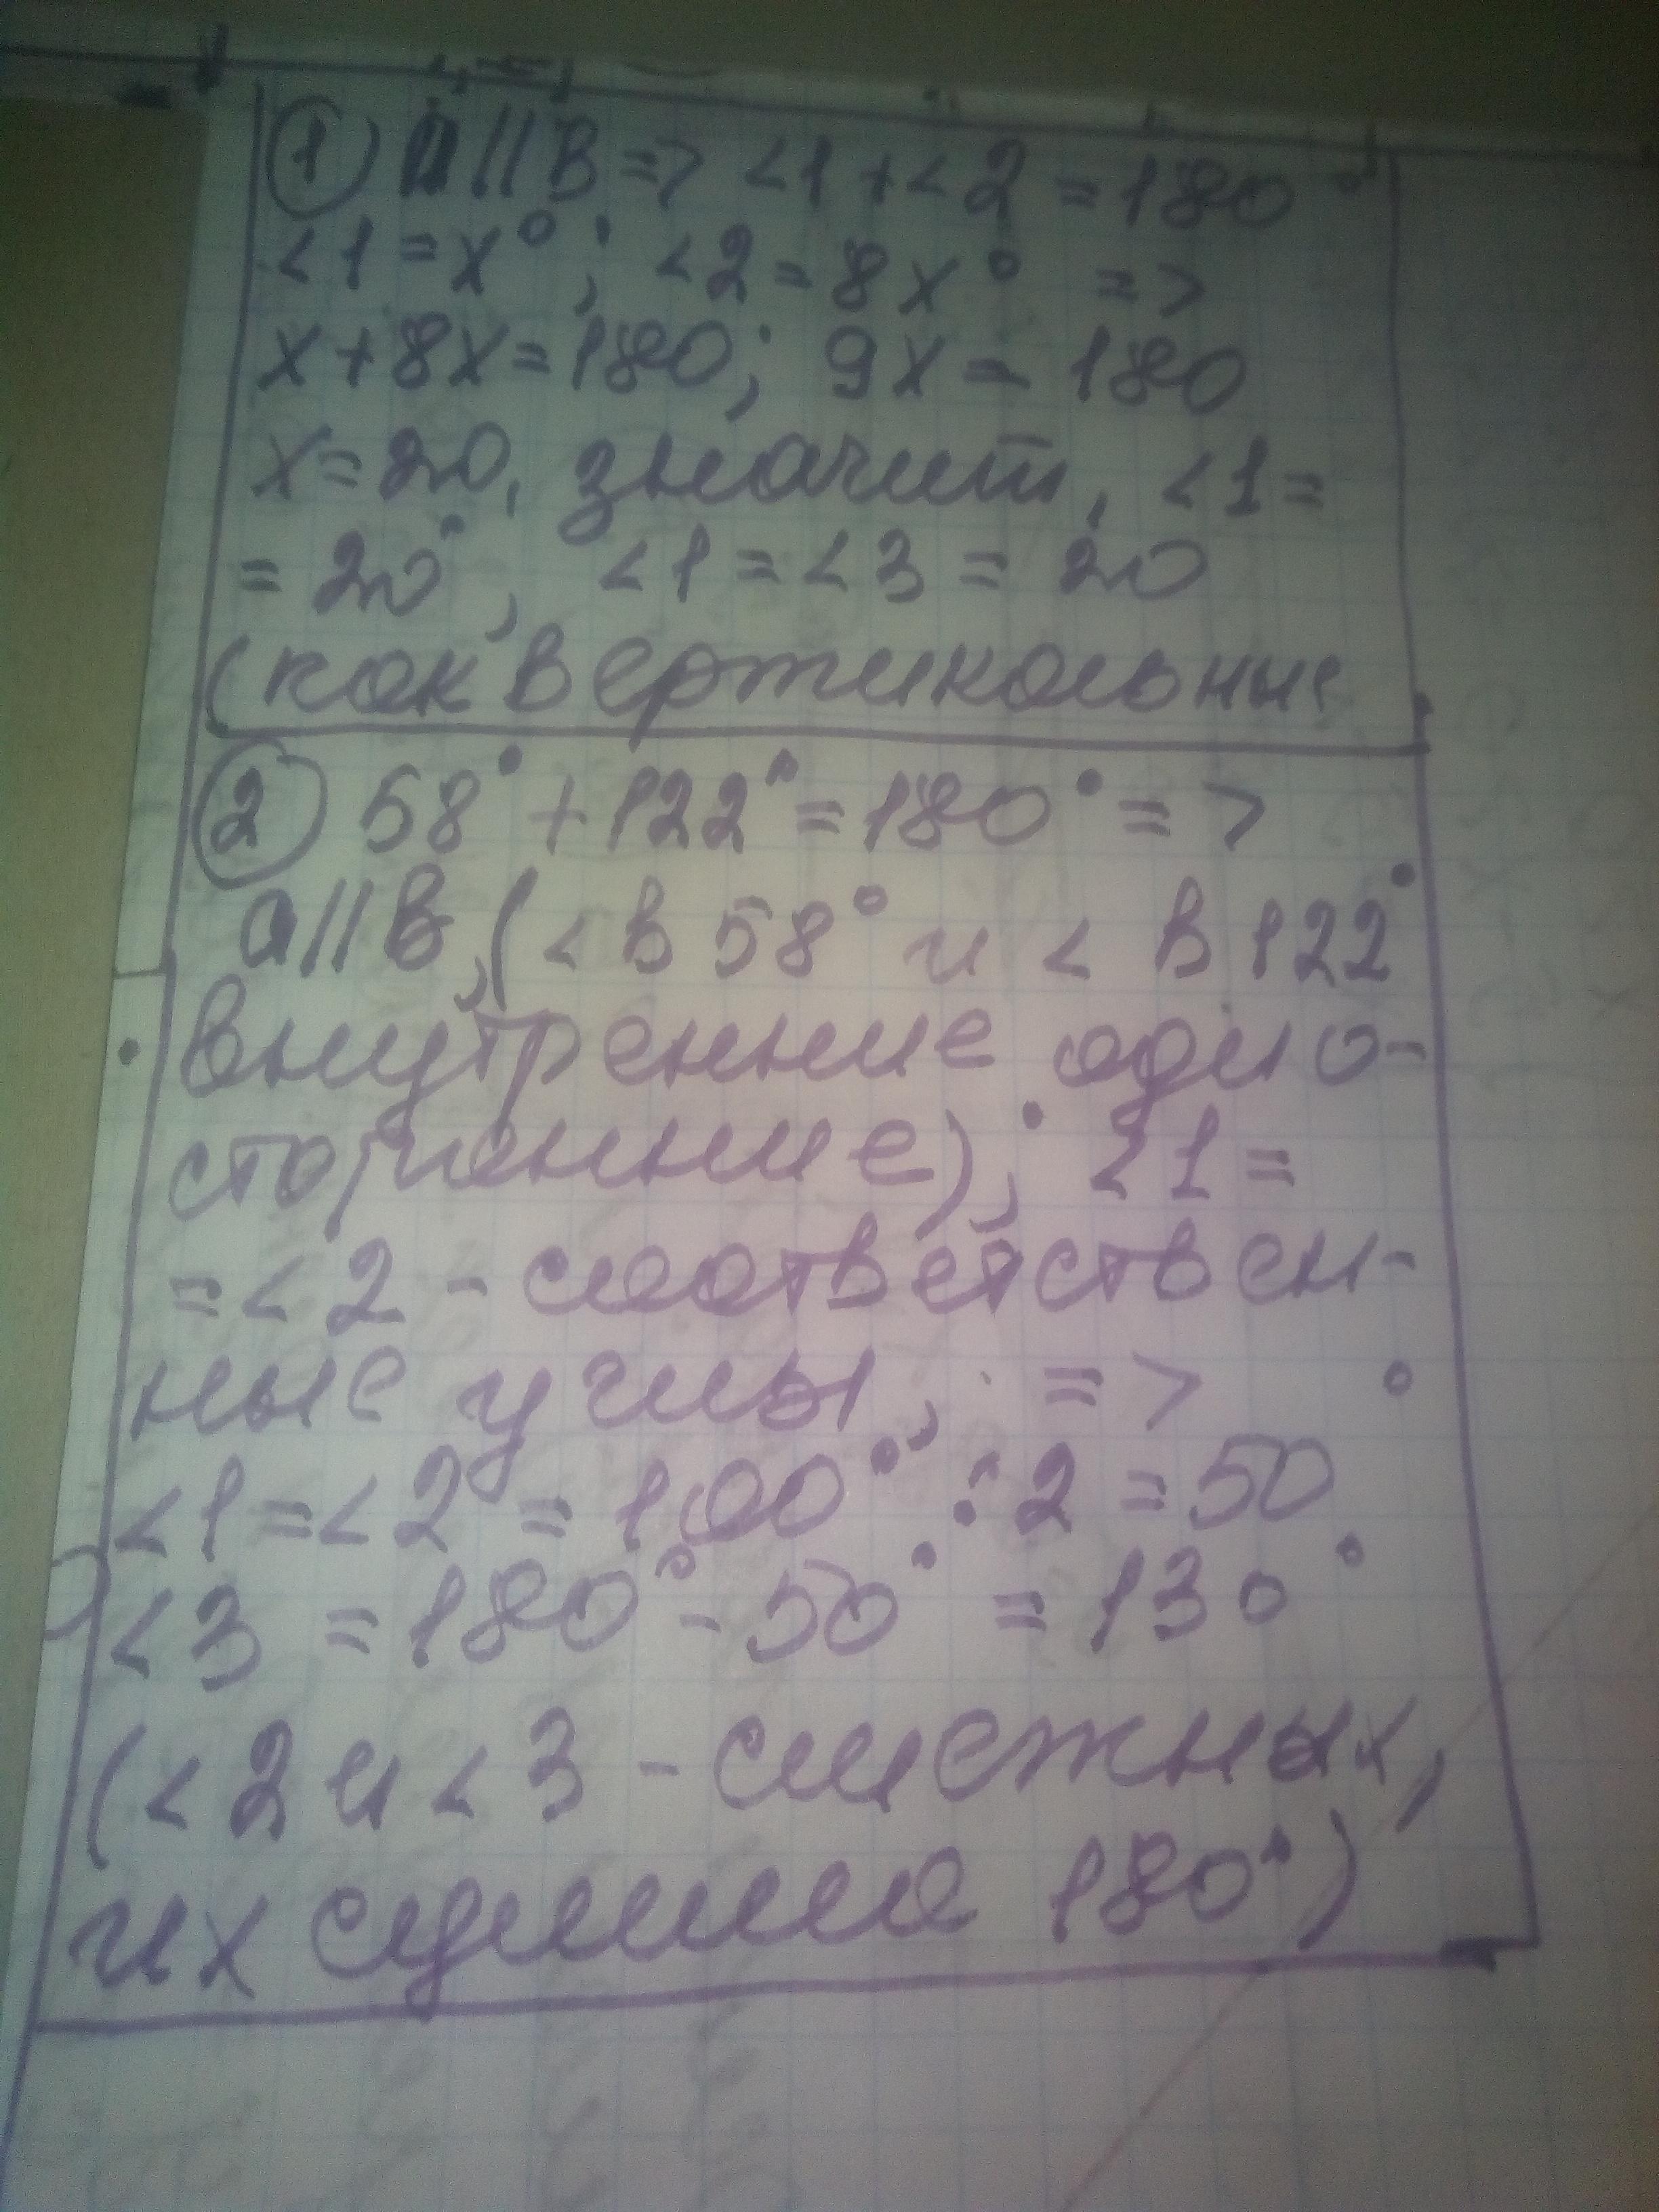 1) a||в => <1+<2=180°
<1=x°; <2=8x° =>
x+8x=180; 9x=180
x=20, значит, <1=
=20°, <1=<3=20
(как вертикальные
2) 58°+122°=180° =>
a||в, (< в 58° и < в 122°
внутренние одно-
сторонние); <1=
=<2 - соответствен-
ные углы, =>
<1=<2=100°:2=50°
<3=180°-50°=130°
(<2 и <3 - смежных,
их сумма 180°)